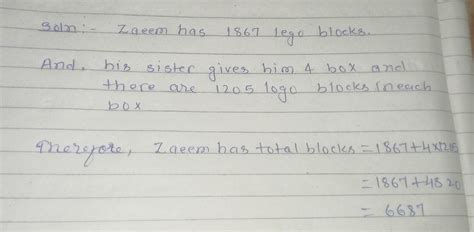 Soln:- Zaeem has 1867 lego blocks.
And, his sister gives him 4 box and
there are 1205 logo blocks in each
box
Therefore, Zaeem has total blocks = 1867+4×1205
= 1867+4820
= 6687